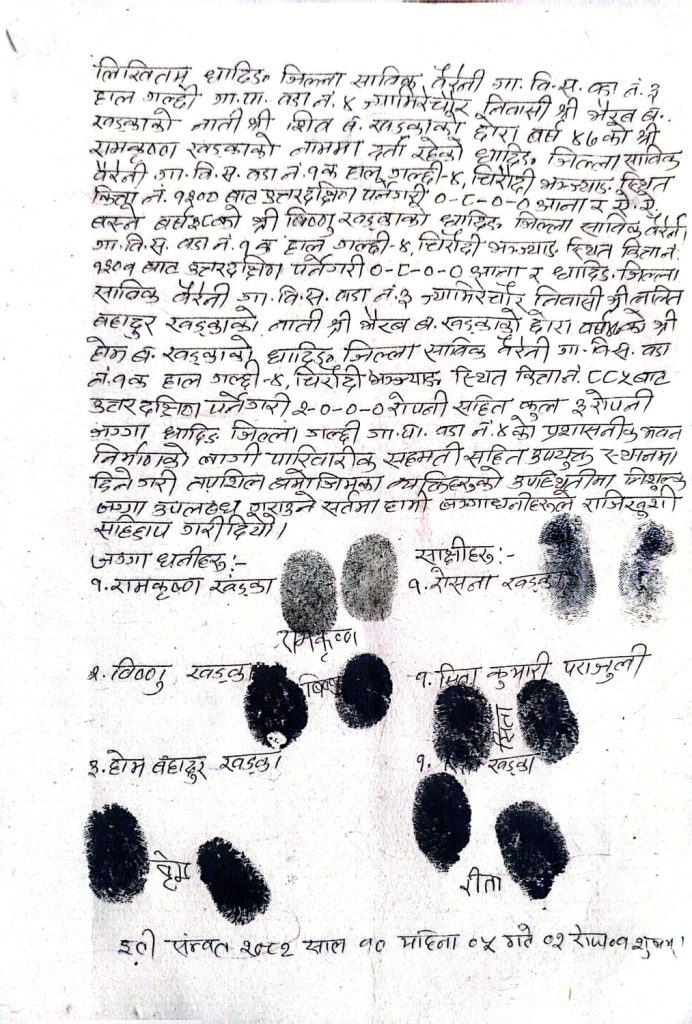 लिखितम् धादिङ जिल्ला साविक नैरेनी गा. वि. स. वडा नं. ३
हाल गल्छी गा.पा. वडा नं. ४ ज्यामिरेचौर निवासी श्री भैरब ब.
खड्काको नाती श्री शिव ब. खड्काको छोरा बर्ष ४७ को श्री
रामकृष्ण खड्काको नाममा दर्ता रहेको धादिङ जिल्ला साविक
नैरेनी गा. वि. स. वडा नं. १क हाल गल्छी-४, चिरौदी भञ्ज्याङ स्थित
कित्ता नं. १२०० बाट उत्तरदक्षिण पर्नेगरी ०-८-०-० आना र ऐ. ऐ.
बस्ने बर्ष को श्री बिष्णु खड्काको धादिङ जिल्ला साविक नैरेनी
गा. वि. स. वडा नं. १ क हाल गल्छी-४, चिरौदी भञ्ज्याङ स्थित कित्ता नं.
१२०१ बाट उत्तरदक्षिण पर्नेगरी ०-८-०-० आना र धादिङ जिल्ला
साविक नैरेनी गा. वि. स. वडा नं. ३ ज्यामिरेचौर निवासी श्री ललित
बहादुर खड्काको नाती श्री भैरब ब. खड्काको छोरा बर्ष को श्री
होम ब. खड्काको धादिङ जिल्ला साविक नैरेनी गा. वि. स. वडा
नं. १क हाल गल्छी-४, चिरौदी भञ्ज्याङ स्थित कित्ता नं. ८८५ बाट
उत्तरदक्षिण पर्नेगरी २-०-०-० रोपनी सहित कुल ३ रोपनी
जग्गा धादिङ जिल्ला गल्छी गा.पा. वडा नं. ४ को प्रशासनीक भवन
निर्माणको लागी पारिवारीक सहमती सहित उपयुक्त स्थानमा
दिने गरी तपशिल बमोजिमका व्यक्तिहरुको उपस्थितीमा निशुल्क
जग्गा उपलब्ध गराउने सर्तमा हामी जग्गाधनीहरुले राजिखुशी
सहिछाप गरी दियौ।
जग्गा धनीहरु:-
१. रामकृष्ण खड्का
रामकृष्ण
२. बिष्णु खड्का
बिष्णु
३. होम बहादुर खड्का
होम
साक्षीहरु:-
१. रोसना खड्का
१. सिता कुमारी पराजुली
सिता
१. खड्का
रीता
इती संम्वत २०८२ साल १० महिना ०५ गते ०२ रोज ०१ शुभम्।